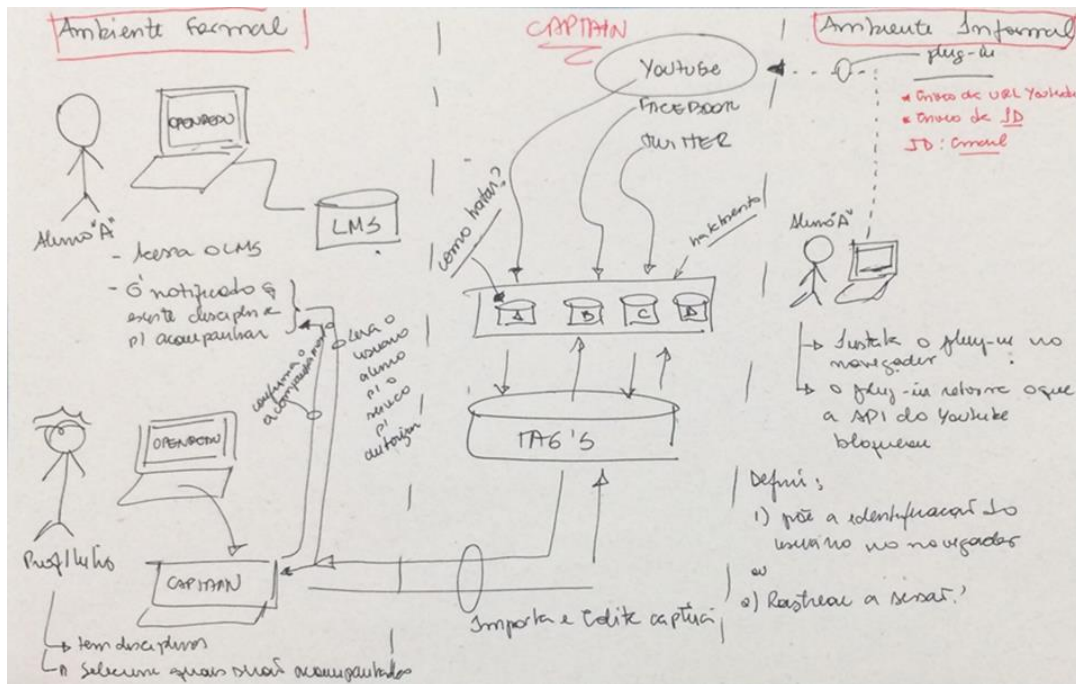 Ambiente Formal
OPENREDU
Aluno "A"
LMS
- Acessa o LMS
- É notificado q
existe disciplina
p/ acompanhar
confirma o
acompanhamento
Leva o
usuário
aluno
p/ o
serviço
p/
autorizar
OPENREDU
CAPITAIN
→ tem disciplinas
→ Selecione quais serão acompanhadas
CAPTAIN
Youtube
FACEBOOK
TWITTER
como tratar?
A
B
C
D
TAG'S
Importa e
Ambiente Informal
plug-in
* Envio de URL Youtube
* Envio de ID
ID: email
Aluno "A"
→ Instala o plug-in no
navegador
→ O plug-in retorna o que
a API do Youtube
bloqueou
Definir:
1) põe a identificação do
usuário no navegador
ou
2) Rastrear a sessão?